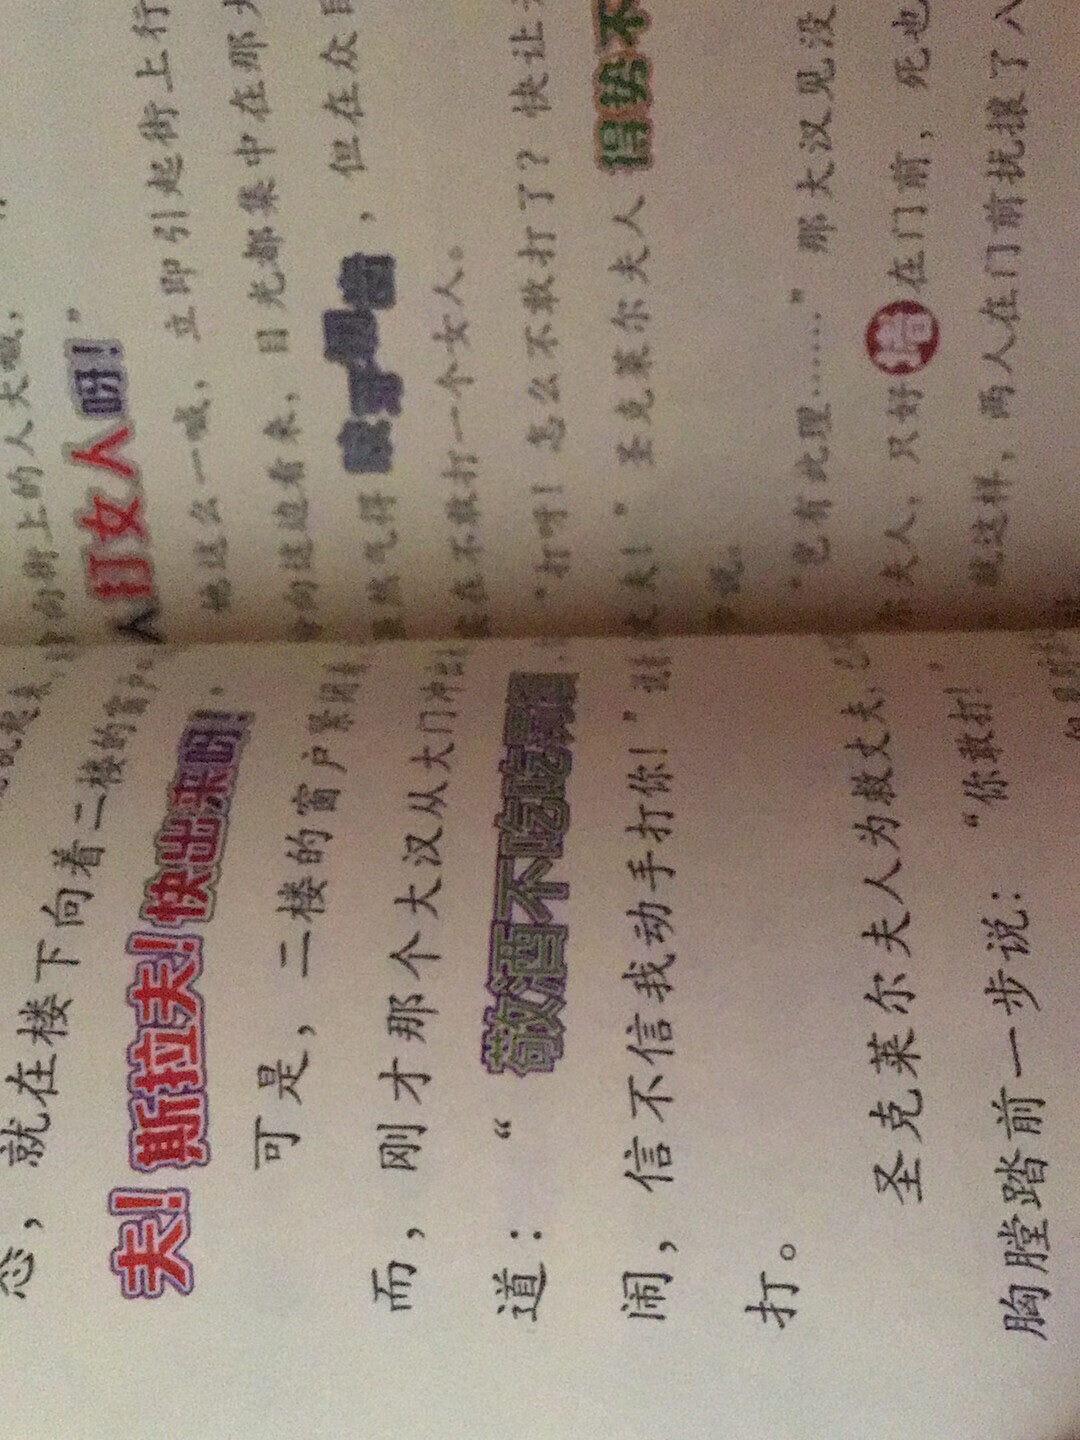 就在楼下向着二楼的窗户
夫！斯拉夫！快出来呀！
可是，二楼的窗户紧闭着
而，刚才那个大汉从大门冲出
道：“敬酒不吃吃罚酒
闹，信不信我动手打你！”说着
打。
圣克莱尔夫人为救丈夫，
胸膛踏前一步说：“你敢打！”
向街上的人大喊，
人打女人呀！”
她这么一喊，立即引起街上行
向这边看来，目光都集中在那
虽然气得
，但在众目
实在不敢打一个女人。
“打呀！怎么不敢打了？快让
丈夫！”圣克莱尔夫人得势不
说。
“岂有此理……”那大汉见没
尔夫人，只好
在门前，死也
就这样，两人在门前扰攘了八